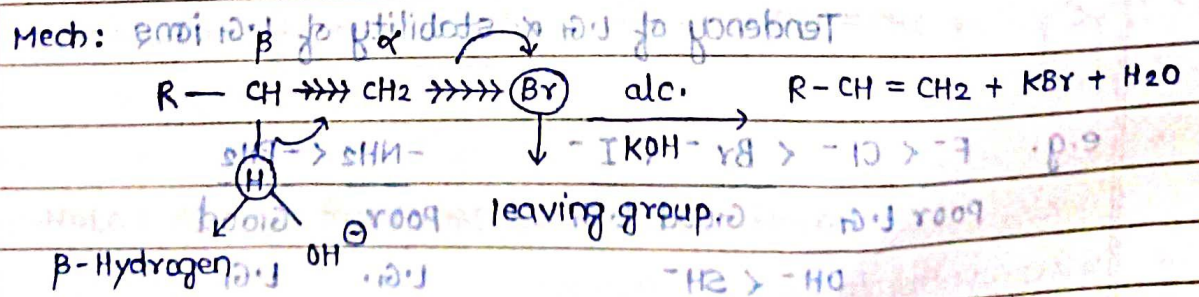 Mech:
β α
R — CH →→→→ CH2 →→→→→ Br alc. R - CH = CH2 + KBr + H2O
KOH
H
leaving group.
β-Hydrogen OH⊖